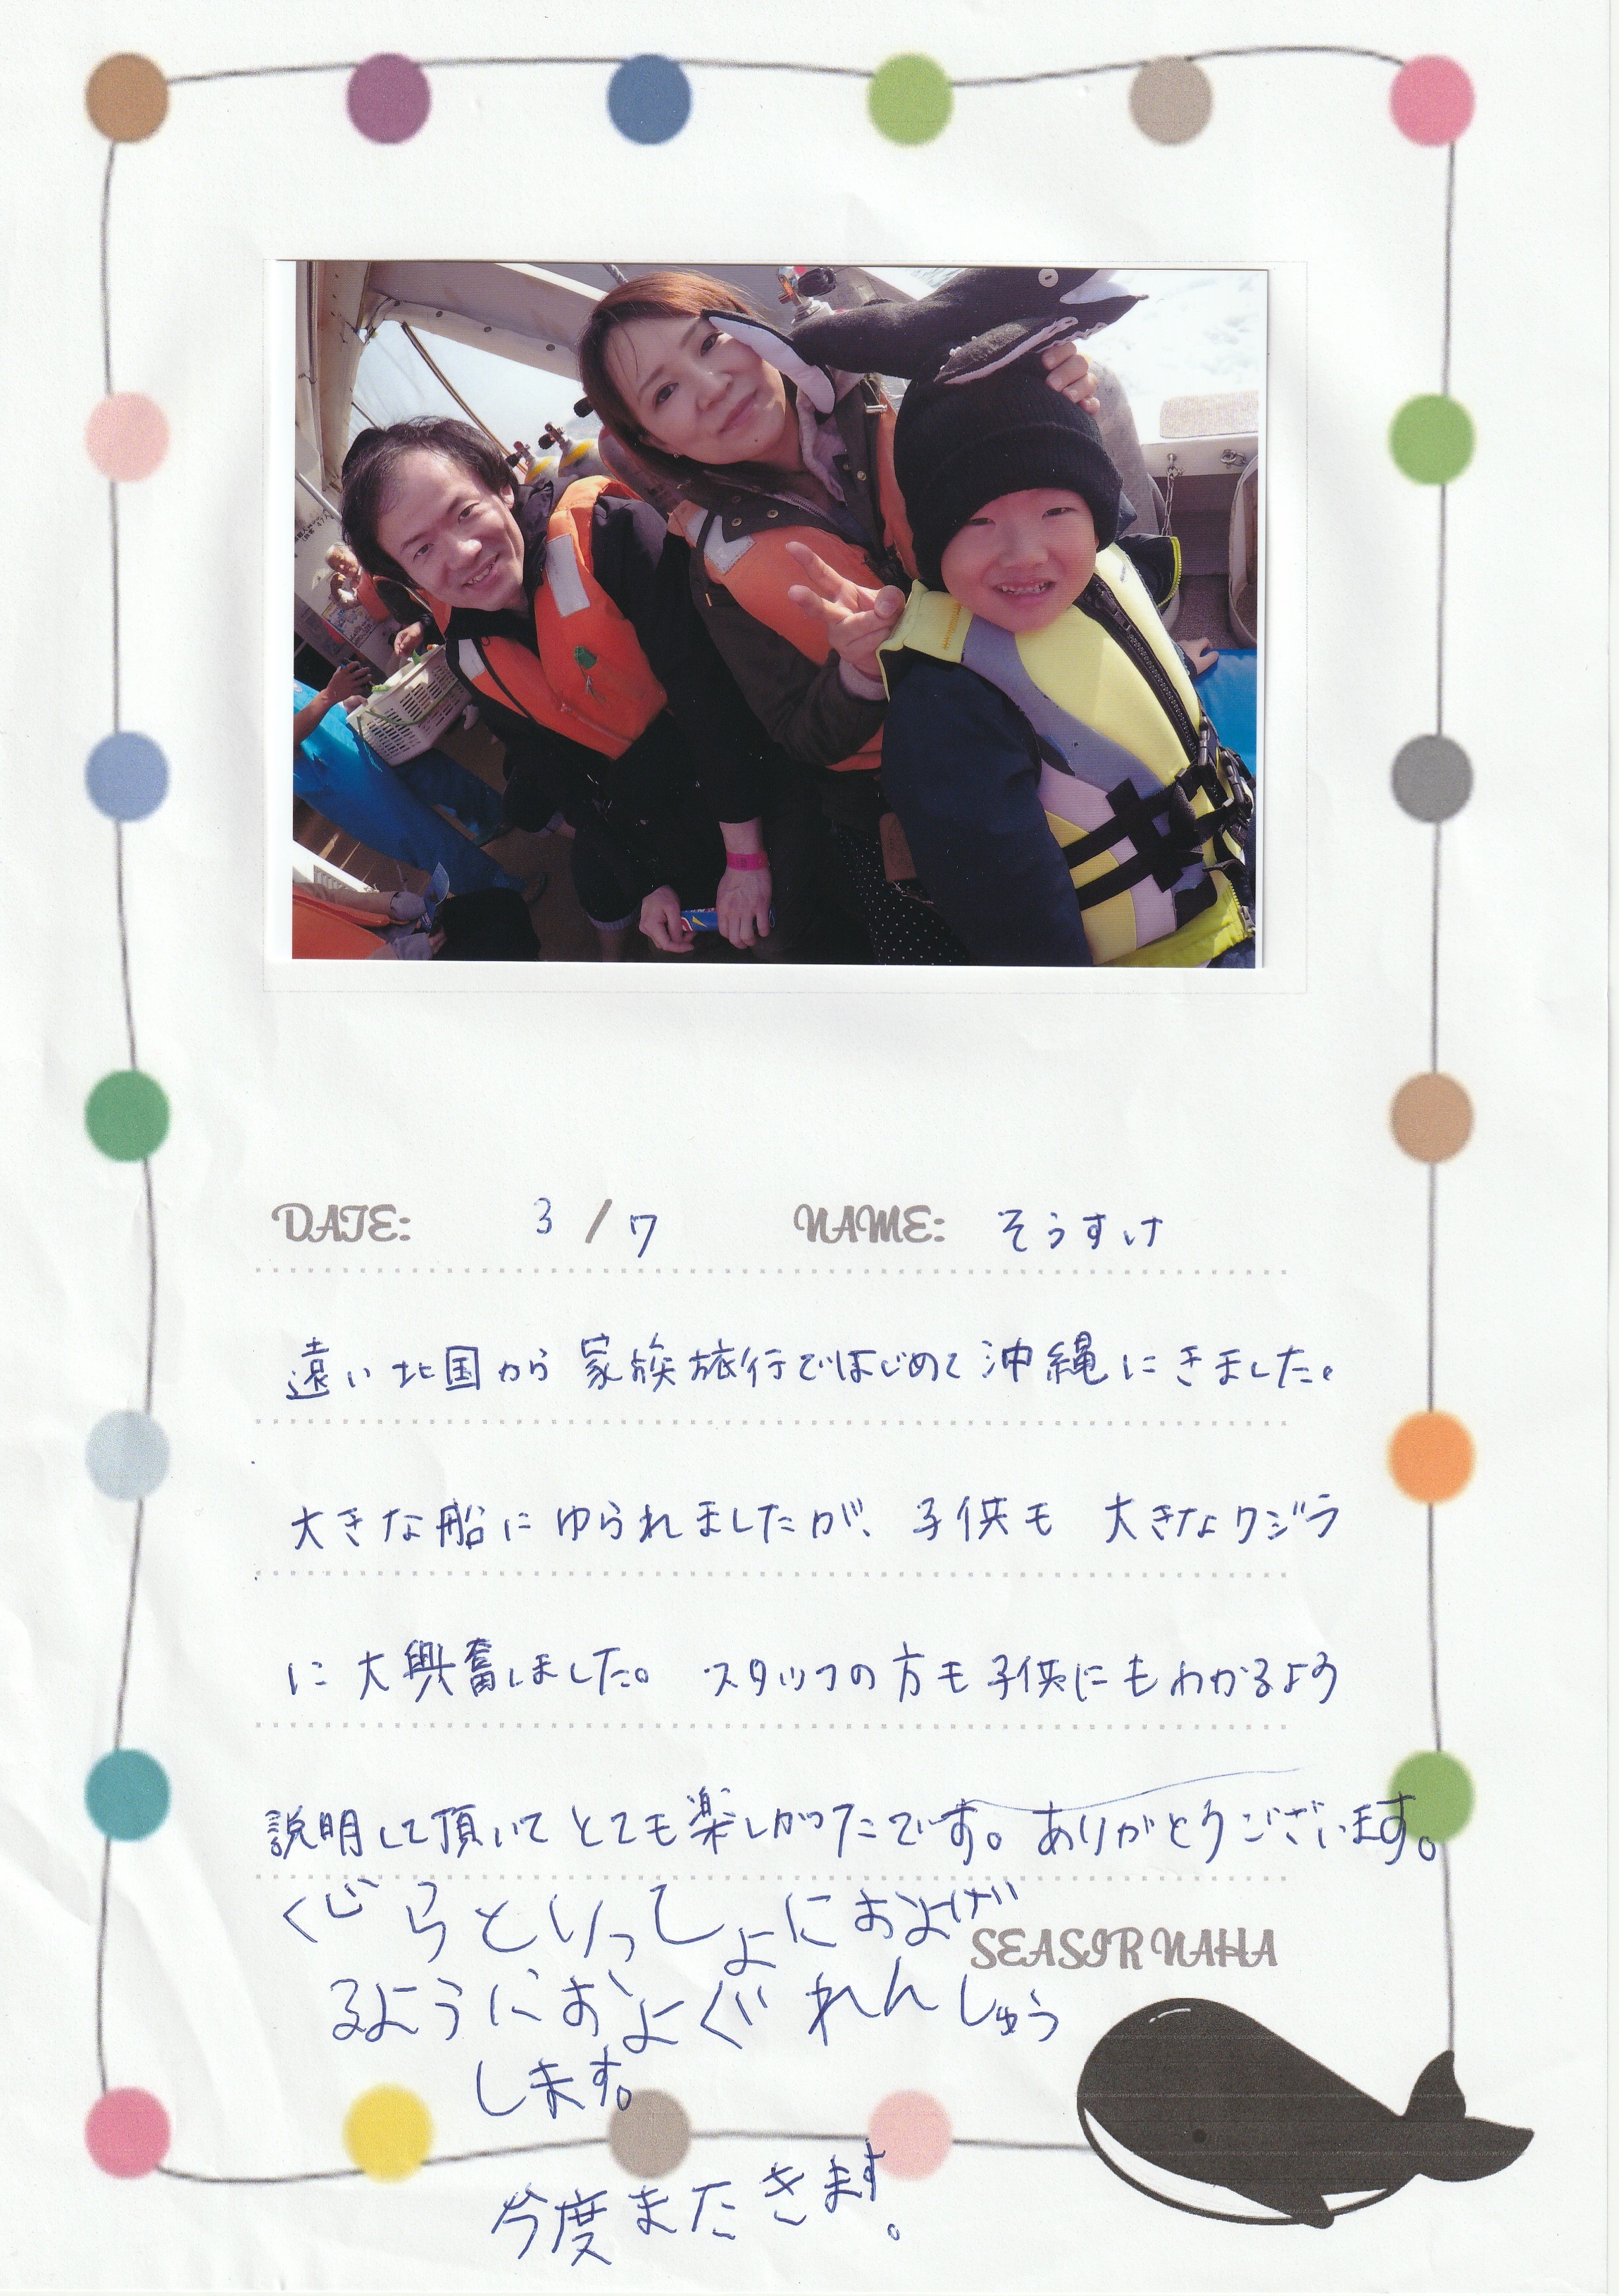 DATE: 3/7 NAME: そうすけ
遠い北国から家族旅行ではじめて沖縄にきました。
大きな船にゆられましたが、子供も大きなクジラ
に大興奮しました。スタッフの方も子供にもわかるよう
説明して頂いてとても楽しかったです。ありがとうございます。
くじらといっしょにおよげ
SEASIR NAHA
るようにおよぐれんしゅう
します。
今度またきます。